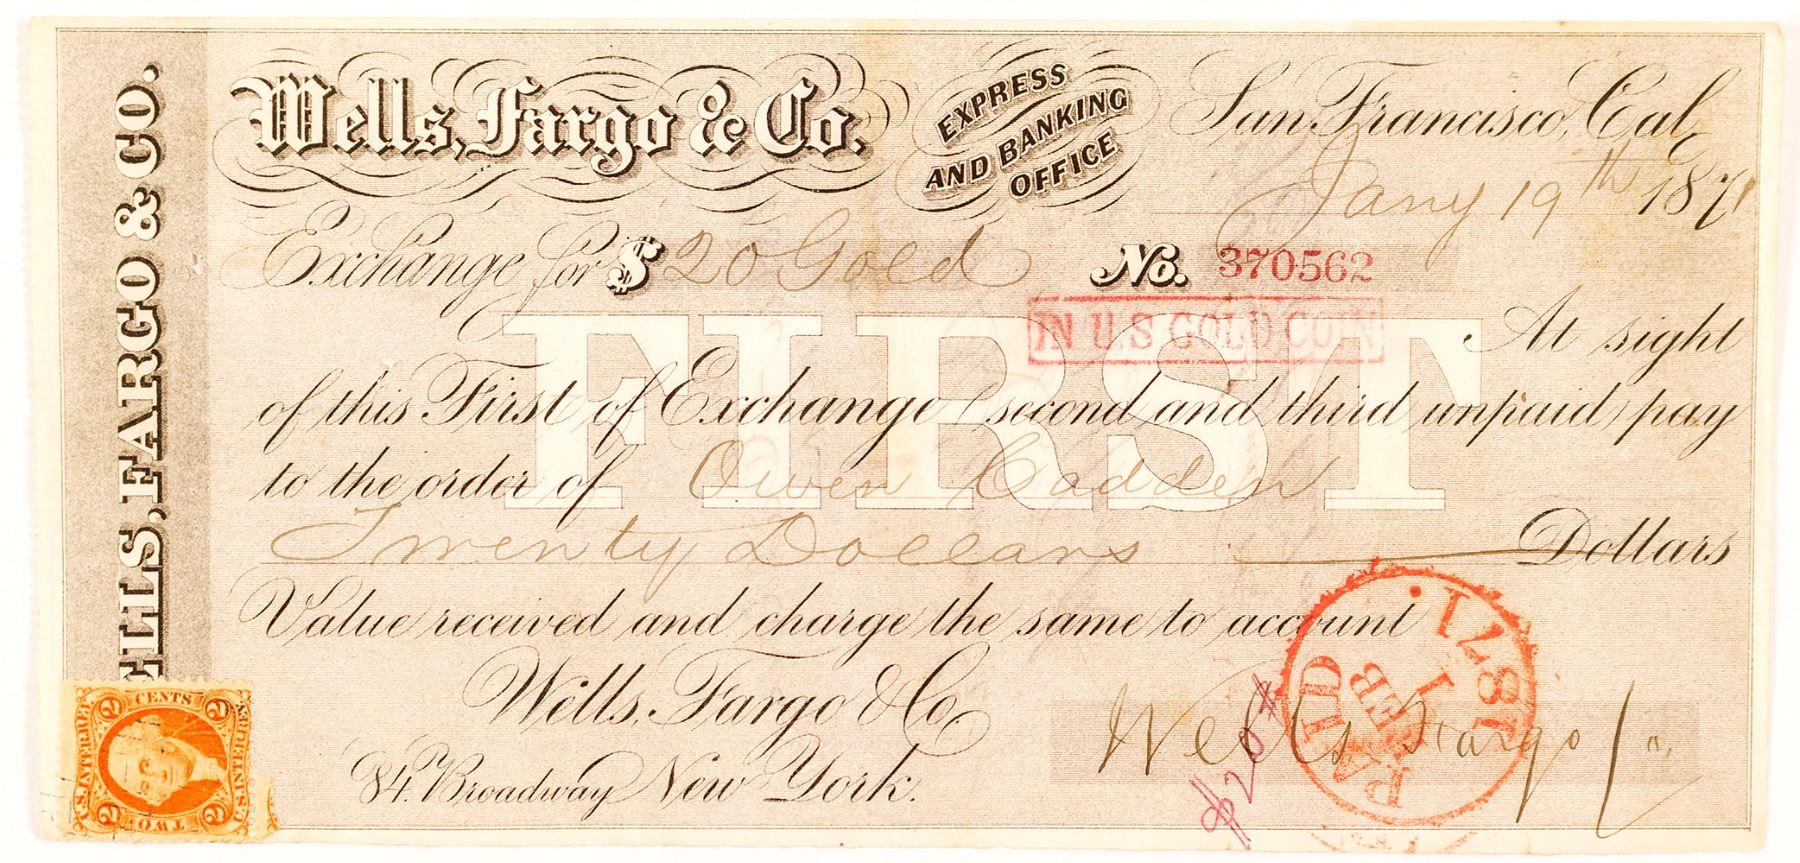 WELLS, FARGO & CO.
Wells, Fargo & Co.
EXPRESS
AND BANKING
OFFICE
San Francisco, Cal,
Jany 19th 1871
Exchange for $ 20 Gold No. 370562
IN U.S GOLD COIN
FIRST
At sight
of this First of Exchange (second and third unpaid) pay
to the order of Owen Cadden
Twenty Dollars Dollars
Value received and charge the same to account
Wells, Fargo & Co.
84 Broadway New York.
Wells Fargo
$20
PAID
FEB
1
1871
2 CENTS 2
U.S. INTER. REV.
INTER. REV. U.S.
2 TWO 2